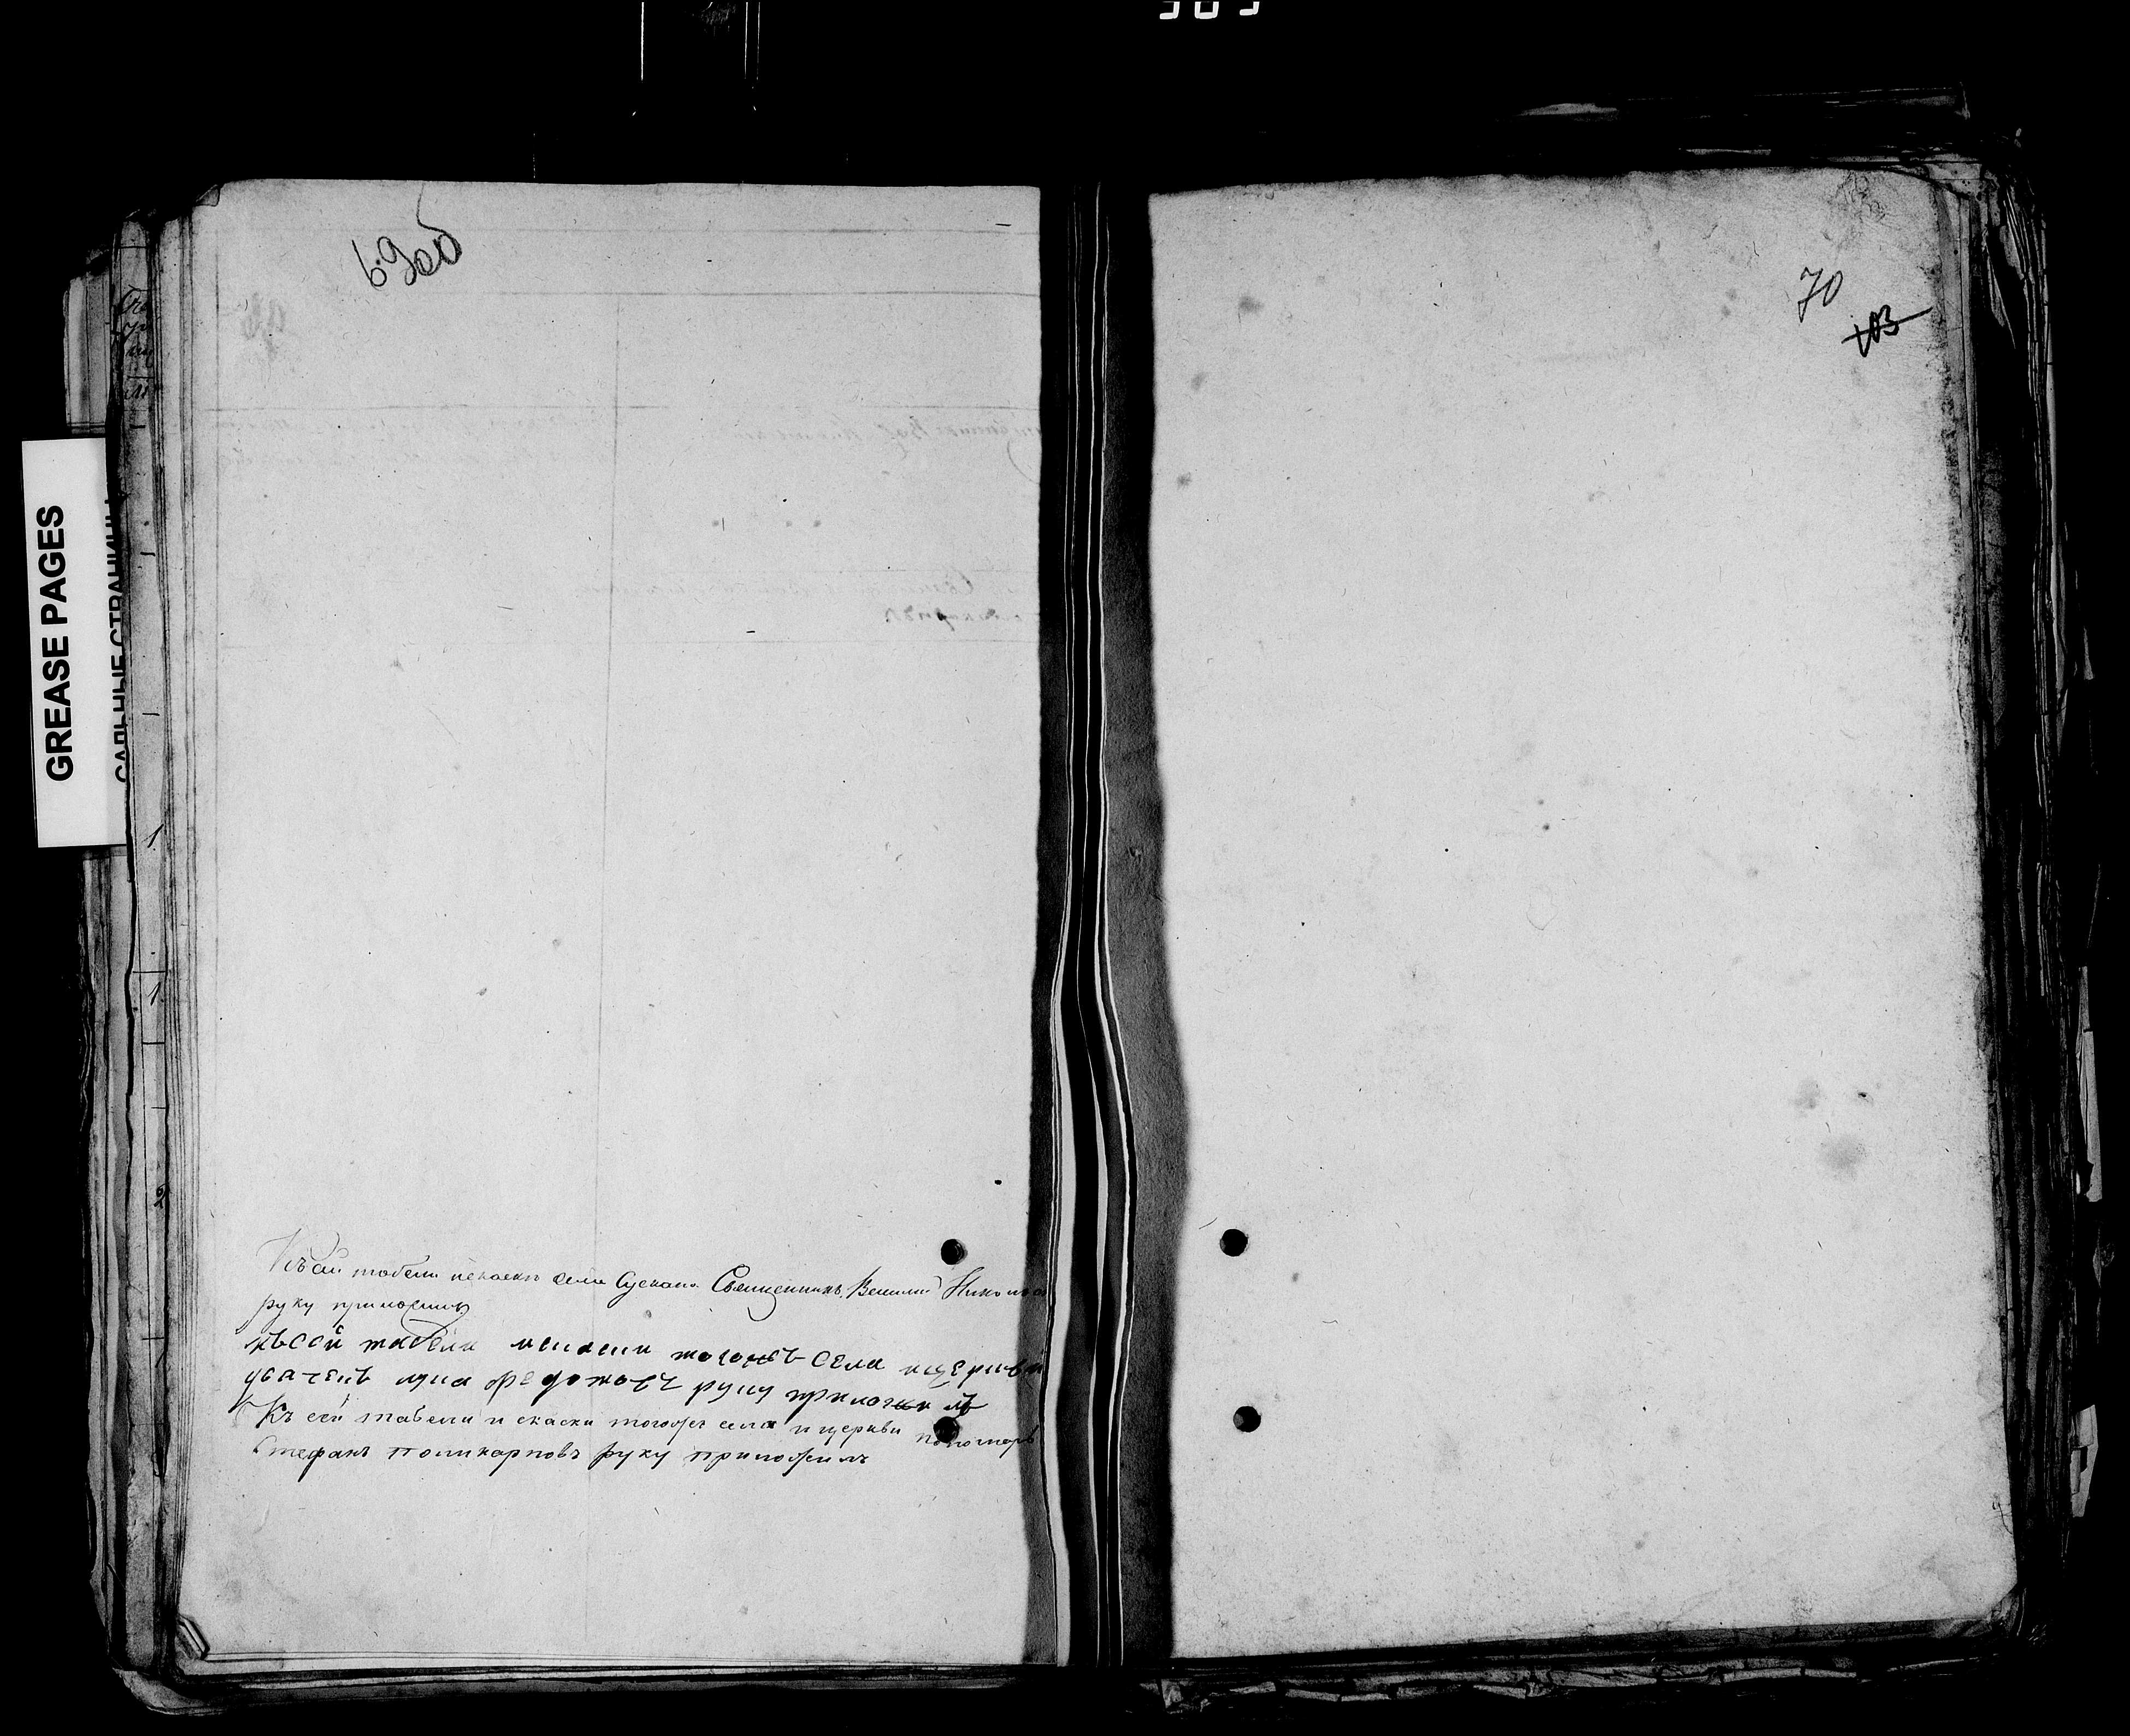 69об
70
103
GREASE PAGES
САЛЬНЫЕ СТРАНИЦЫ
Къ сей табели и скаски села Сускана Священникъ Василий Никола
руку приложилъ
къ сей табели искаски тогожъ села ицеркви
дьячекъ лука федотовъ руку приложилъ
Къ сей табели и скаски тогожъ села и церкви пономарь
Стефанъ поликарповъ руку приложилъ